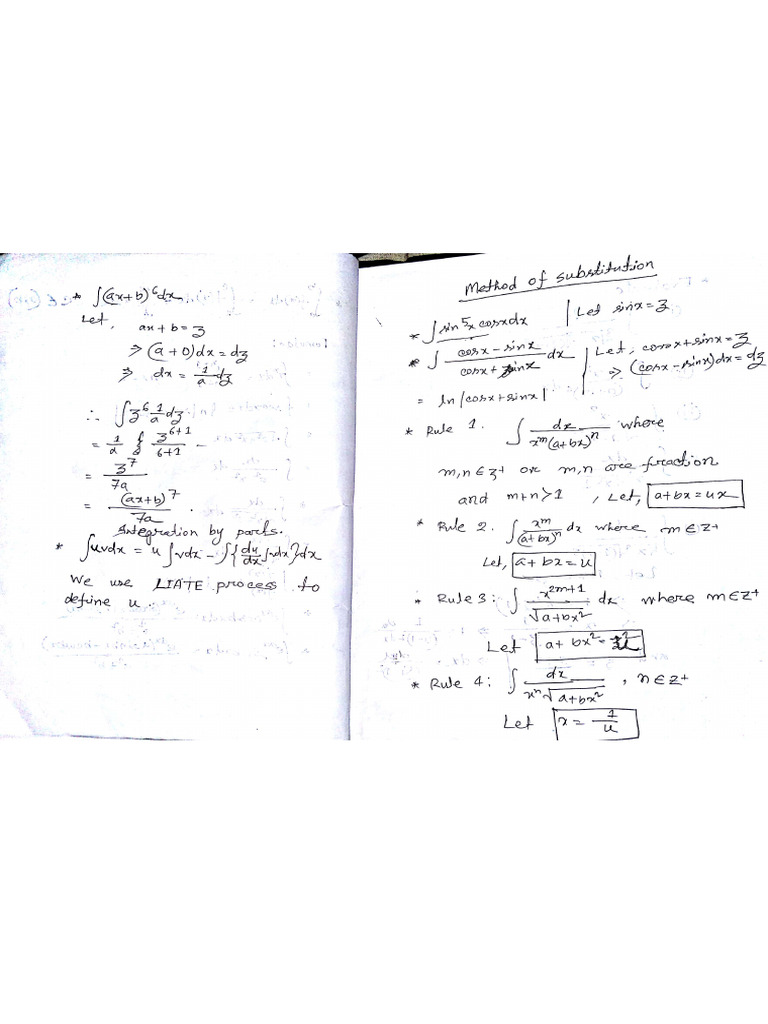 * ∫(ax+b)^6 dx.
Let,
ax+b = z
⇒ (a+0)dx = dz
⇒ dx = 1/a dz
∴ ∫z^6 1/a dz
= 1/a z^(6+1)/(6+1)
= z^7/7a
= (ax+b)^7/7a .
Integration by parts.
* ∫uvdx = u∫vdx - ∫{du/dx ∫vdx}dx
We use LIATE process to
define u.
Method of substitution
* ∫sin^5x cosxdx | Let sinx = z
* ∫ (cosx - sinx)/(cosx + sinx) dx | Let, cosx+sinx = z
⇒ (cosx - sinx)dx = dz
= ln|cosx+sinx|
* Rule 1. ∫ dx/(x^m(a+bx)^n) where
m,n∈z+ or m,n are fraction
and m+n>1 , Let, a+bx = ux
* Rule 2. ∫ x^m/(a+bx)^n dx where m∈z+
Let, a+bx = u
* Rule 3: ∫ x^(2m+1)/√(a+bx^2) dx where m∈z+
Let a+bx^2 = u^2
* Rule 4: ∫ dx/(x^n√(a+bx^2)) , n∈z+
Let x = 1/u